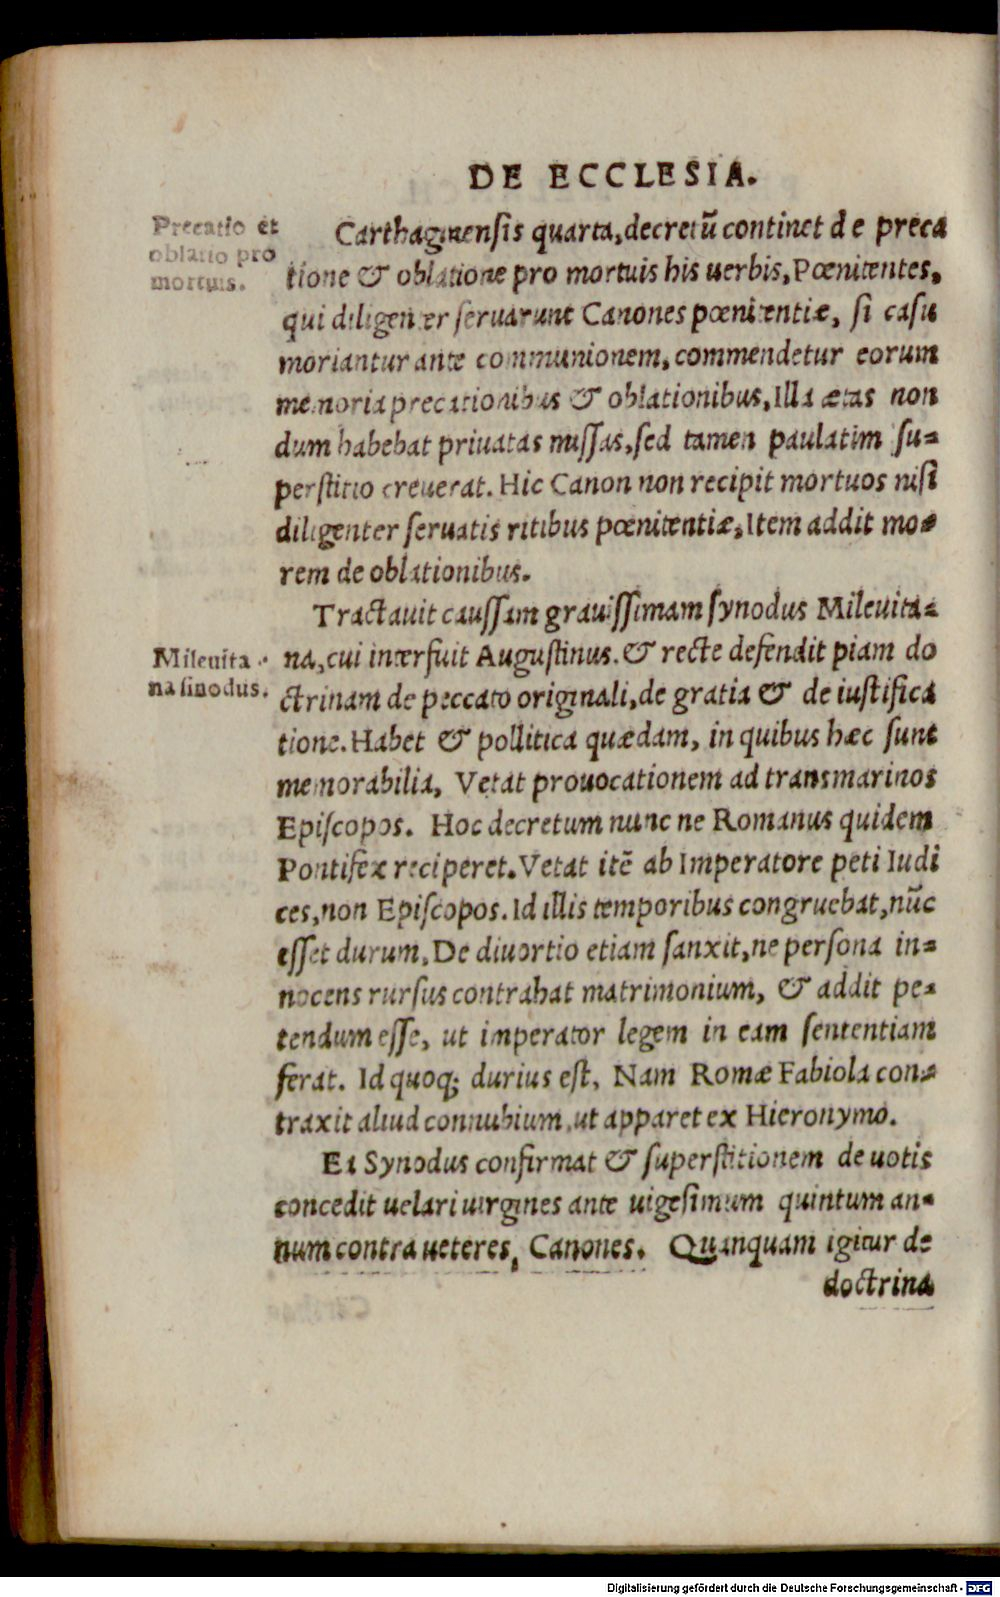 DE ECCLESIA.
Precatio et
oblatio pro
mortuis.
Carthaginensis quarta, decretū continet de preca
tione & oblatione pro mortuis his uerbis, Pœnitentes,
qui diligenter seruarunt Canones pœnitentiæ, si casu
moriantur ante communionem, commendetur eorum
memoria precationibus & oblationibus, Illa ætas non
dum habebat priuatas missas, sed tamen paulatim su=
perstitio creuerat. Hic Canon non recipit mortuos nisi
diligenter seruatis ritibus pœnitentiæ, Item addit mo=
rem de oblationibus.
Tractauit caussam grauissimam synodus Mileuita=
Mileuita
na sinodus.
na, cui interfuit Augustinus. & recte defendit piam do
ctrinam de peccato originali, de gratia & de iustifica
tione. Habet & pollitica quædam, in quibus hæc sunt
memorabilia, Vetat prouocationem ad transmarinos
Episcopos. Hoc decretum nunc ne Romanus quidem
Pontifex reciperet. Vetat itē ab Imperatore peti Iudi
ces, non Episcopos. Id illis temporibus congruebat, nūc
esset durum, De diuortio etiam sanxit, ne persona in=
nocens rursus contrahat matrimonium, & addit pe=
tendum esse, ut imperator legem in eam sententiam
ferat. Id quoq; durius est, Nam Romæ Fabiola con=
traxit aliud connubium, ut apparet ex Hieronymo.
Ea Synodus confirmat & superstitionem de uotis
concedit uelari uirgines ante uigesimum quintum an=
num contra ueteres, Canones. Quanquam igitur de
doctrina
Digitalisierung gefördert durch die Deutsche Forschungsgemeinschaft - DFG